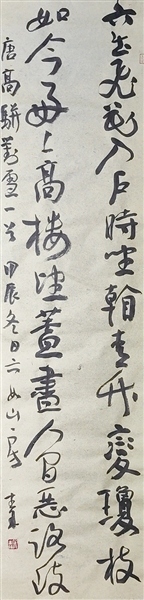 六出飛花入戶時坐看青竹變瓊枝
如今好上高樓望蓋盡人間惡路歧
唐高駢對雪一首 甲辰冬日